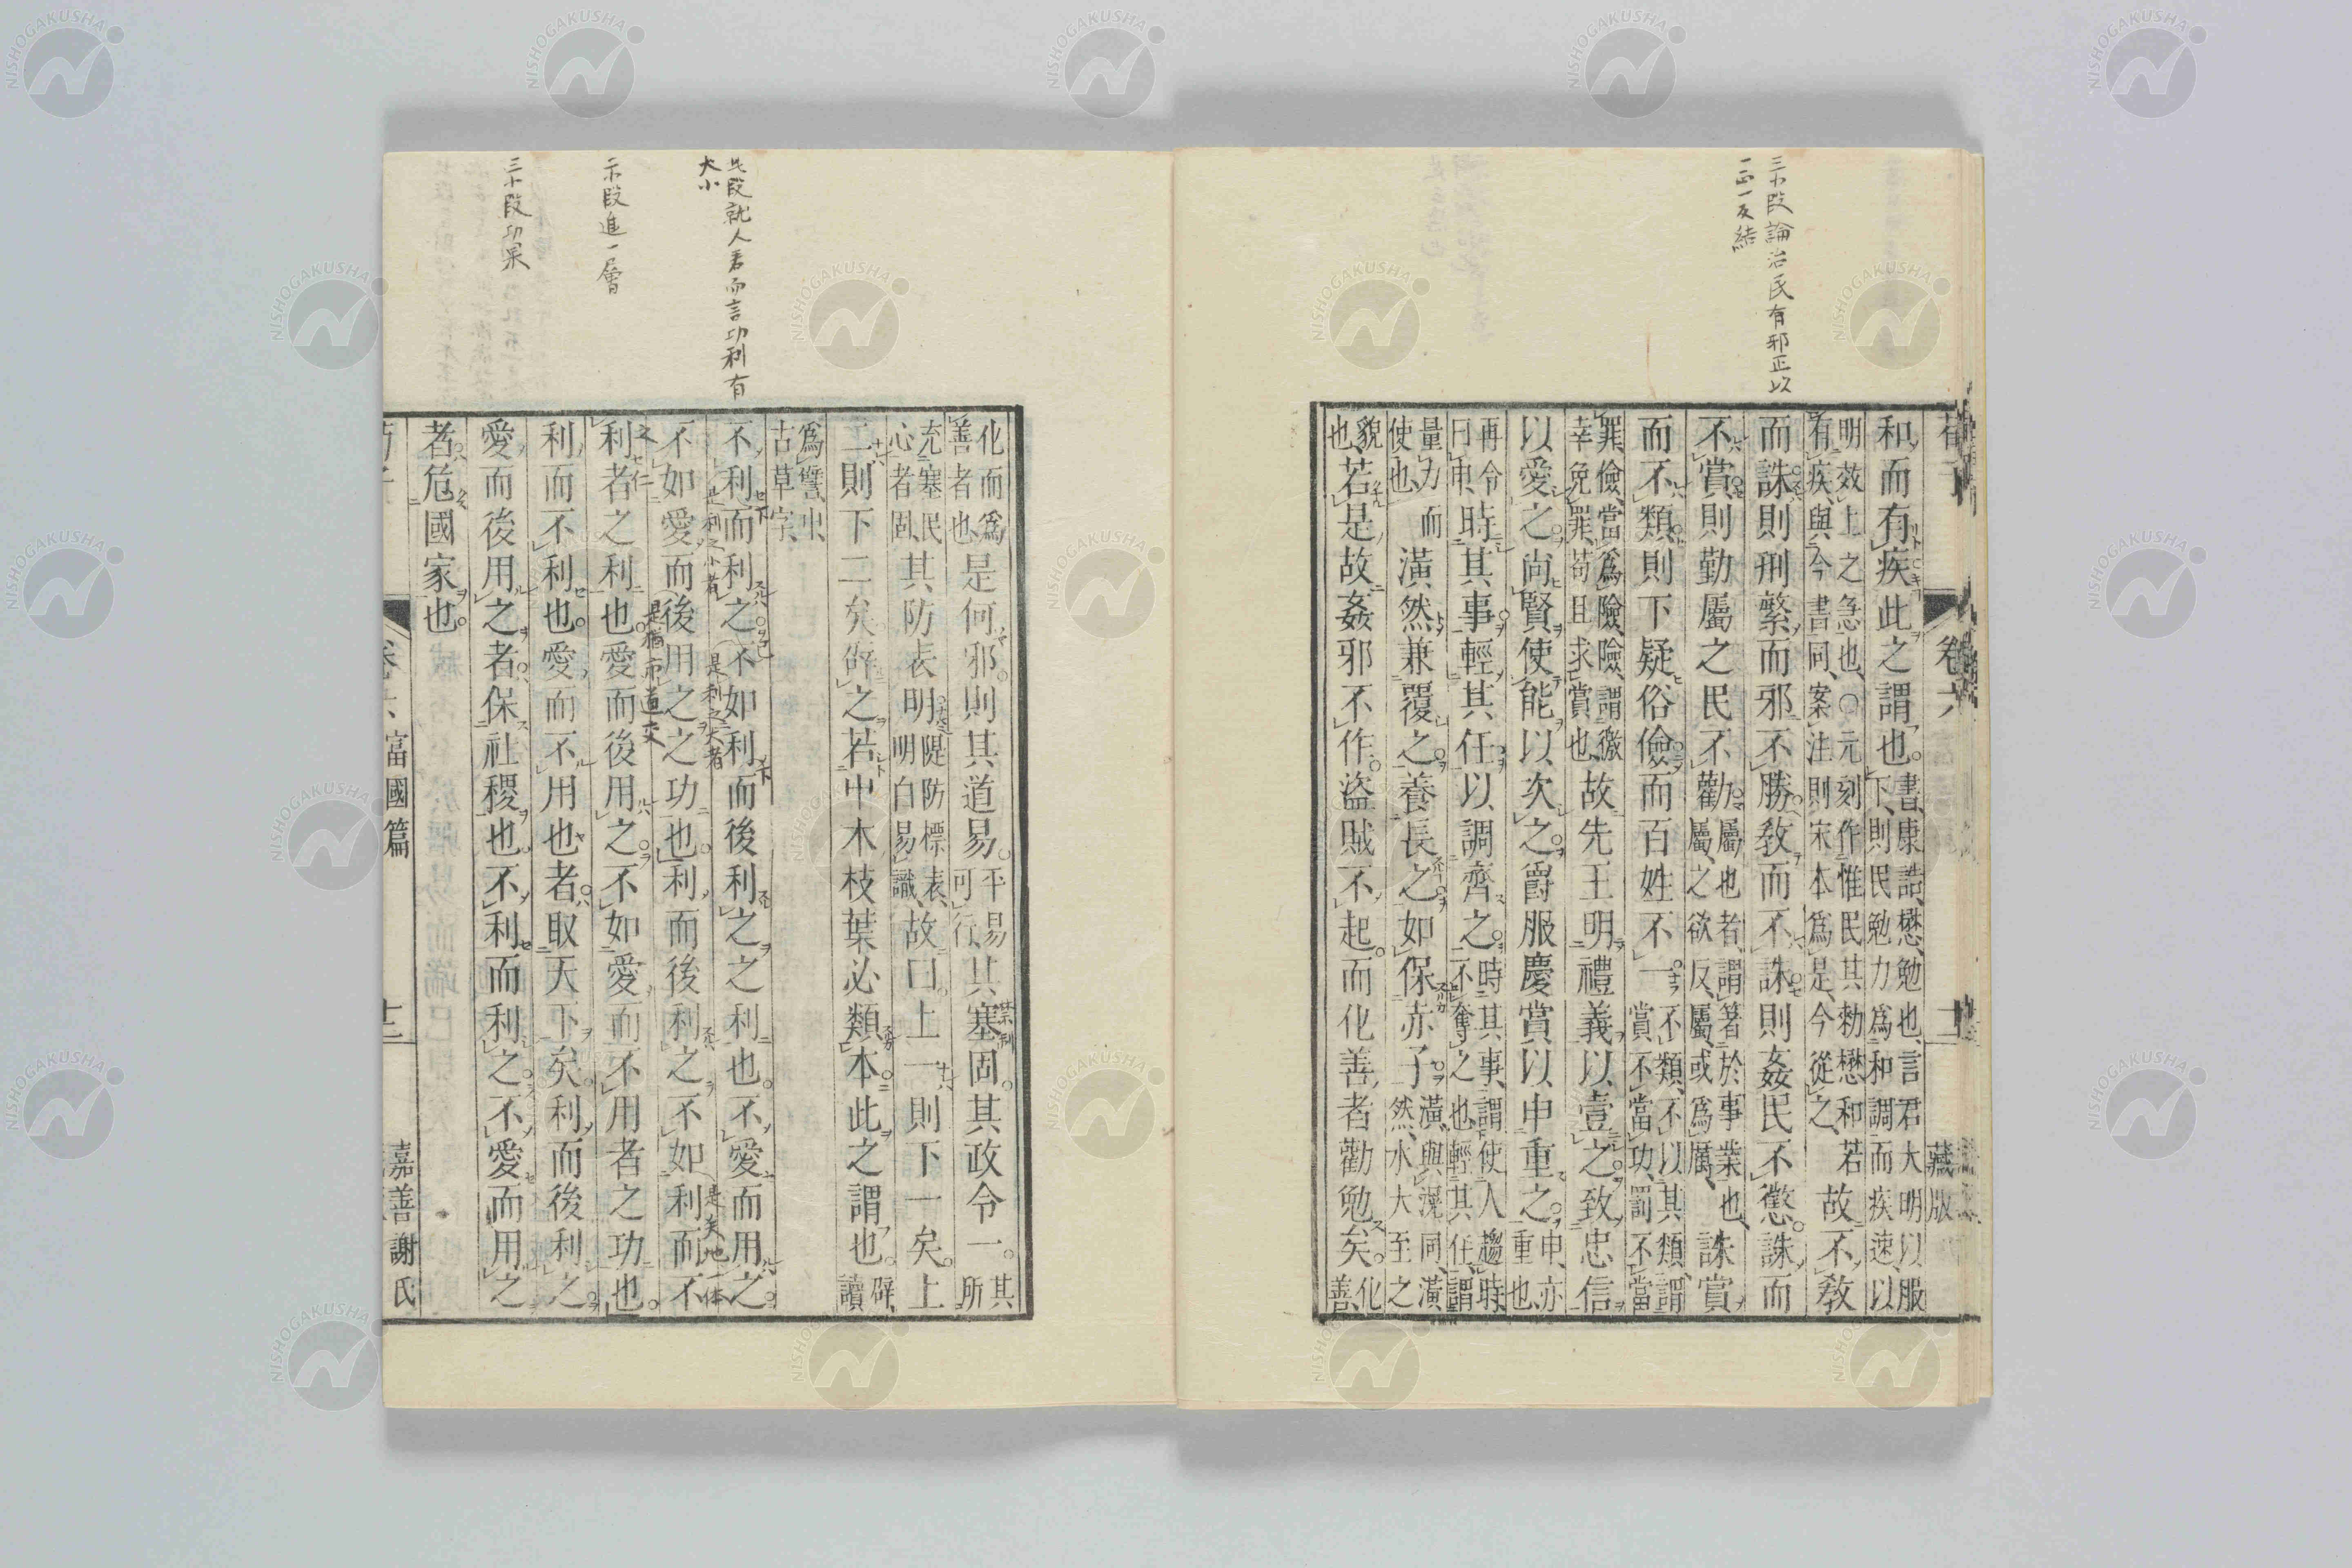 三小段論治民有邪正以
一正一反結
卷六
藏版
和而有疾此之謂也。書康誥懋勉也言君大明以服
下則民勉力爲和調而疾速以
明效上之急也○元刻作惟民其勑懋和若
有疾與今書同案注則宋本爲是今從之故不敎
而誅則刑繁而邪不勝敎而不誅則姦民不懲。誅而
不賞則勤屬之民不勸屬也者謂著於事業也
屬之欲反屬或爲厲誅賞
而不類則下疑俗儉而百姓不一。不類不以其類謂
賞不當功罰不當
罪儉當爲險險謂徼
幸免罪苟且求賞也故先王明禮義以壹之致忠信
以愛之尚賢使能以次之爵服慶賞以申重之申亦
重也
再令
曰申時其事輕其任以調齊之時其事謂使人趨時
不奪之也輕其任謂
量力而
使也潢然兼覆之養長之如保赤子潢與滉同潢
然水大至之
貌
也若是故姦邪不作。盜賊不起。而化善者勸勉矣。化
善
此段就人君而言功利有
大小
二小段進一層
三小段功果
化而爲
善者也是何邪則其道易。平易
可行其塞固。其政令一。其
所
充塞民
心者固其防表明隄防標表
明白易識故曰上一則下一矣。上
二則下二矣辟之若屮木枝葉必類本此之謂也。辟
讀
爲譬屮
古草字
不利而利之。不如利而後利之之利也。不愛而用之。
利之小者
是利之大者
不如愛而後用之之功也。利而後利之不如利而不
是猶市道交
是天地一体
利者之利也。愛而後用之不如愛而不用者之功也。
利而不利也。愛而不用也者取天下矣利而後利之。
愛而後用之者保社稷也不利而利之。不愛而用之
者危國家也。
富國篇
嘉善謝氏